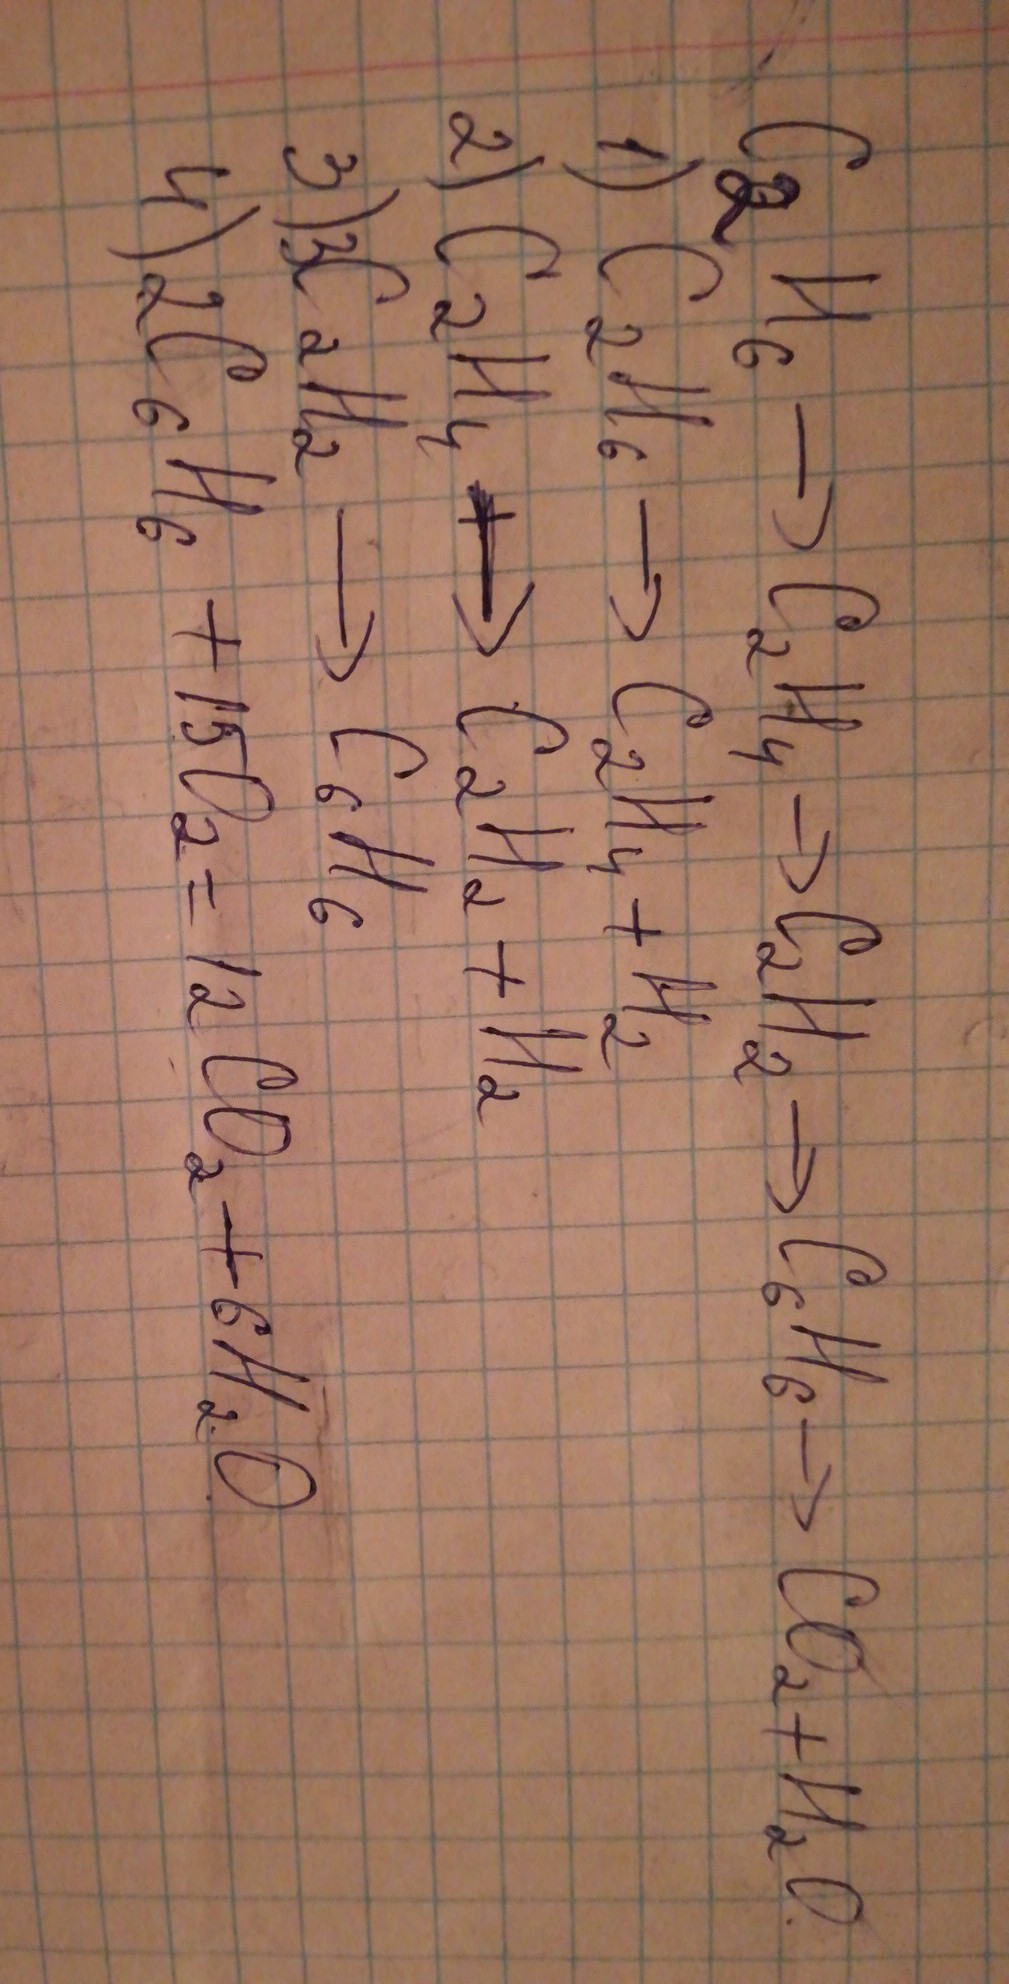 C₂H₆ → C₂H₄ → C₂H₂ → C₆H₆ → CO₂ + H₂O.
1) C₂H₆ → C₂H₄ + H₂
2) C₂H₄ → C₂H₂ + H₂
3) 3C₂H₂ → C₆H₆
4) 2C₆H₆ + 15O₂ = 12CO₂ + 6H₂O